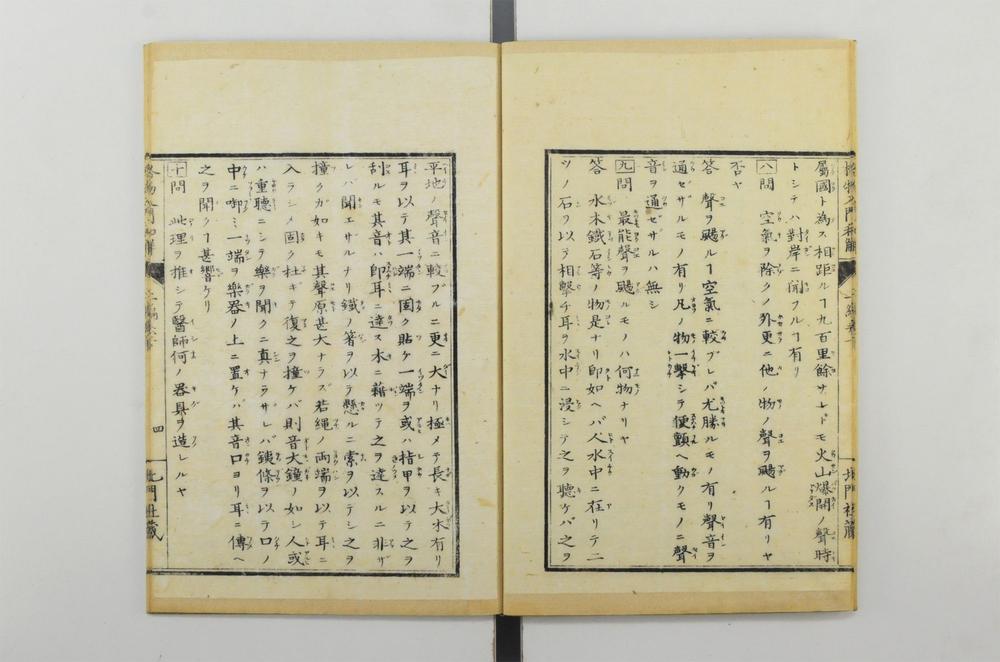 屬國ト為ス相距ルヿ九百里餘サレドモ火山爆開ノ聲時
トシテハ對岸ニ聞フルヿ有リ
八問 空氣ヲ除クノ外更ニ他ノ物ノ聲ヲ颺ルヿ有リヤ
否ヤ
答 聲ヲ颺ルヿ空氣ニ較ブレバ尤勝ルモノ有リ聲音ヲ
通ゼザルモノ有リ凡ノ物一擊シテ便顫ヘ動クモノニ聲
音ヲ通ゼザルハ無シ
九問 最能聲ヲ颺ルモノハ何物ナリヤ
答 水木鐵石等ノ物是ナリ即如ヘバ人水中ニ在リテ二
ツノ石ヲ以テ相擊チ耳ヲ水中ニ浸シテ之ヲ聽ケバ之ヲ
平地ノ聲音ニ較ブルニ更ニ大ナリ極メテ長キ大木有リ
耳ヲ以テ其一端ニ固ク貼ケ一端ヲ或ハ指甲ヲ以テ之ヲ
刮ルモ其音ハ即耳ニ達ス木ニ藉ツテ之ヲ達スルニ非ザ
レバ聞エザルナリ鐵ノ箸ヲ以テ懸ルニ索ヲ以テシ之ヲ
撞クガ如キモ其聲原甚大ナラズ若繩ノ兩端ヲ以テ耳ニ
入ラシメ固ク杜ギテ復之ヲ撞ケバ則音大鐘ノ如シ人或
ハ重聽ニシテ樂ヲ聞クニ真ナラザレバ鐵條ヲ以テ口ノ
中ニ啣ミ一端ヲ樂器ノ上ニ置ケバ其音口ヨリ耳ニ傳ヘ
之ヲ聞クヿ甚響ケリ
十問 此理ヲ推シテ醫師何ノ器具ヲ造レルヤ
四
北門社藏